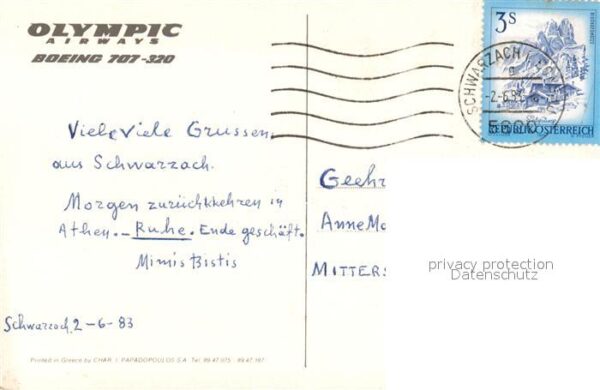 OLYMPIC
AIRWAYS
BOEING 707-320
3S
REPUBLIK ÖSTERREICH
SCHWARZACH
-2.-6.83
Viele Viele Grussen
aus Schwarzach.
Morgen zurückkehren in
Athen.- Ruhe. Ende geschäft.
Mimis Bistis
Schwarzach, 2-6-83
Geehr
Anne Ma
MITTERS
privacy protection
Datenschutz
Printed in Greece by CHAR. I. PAPADOPOULOS S.A. Tel.